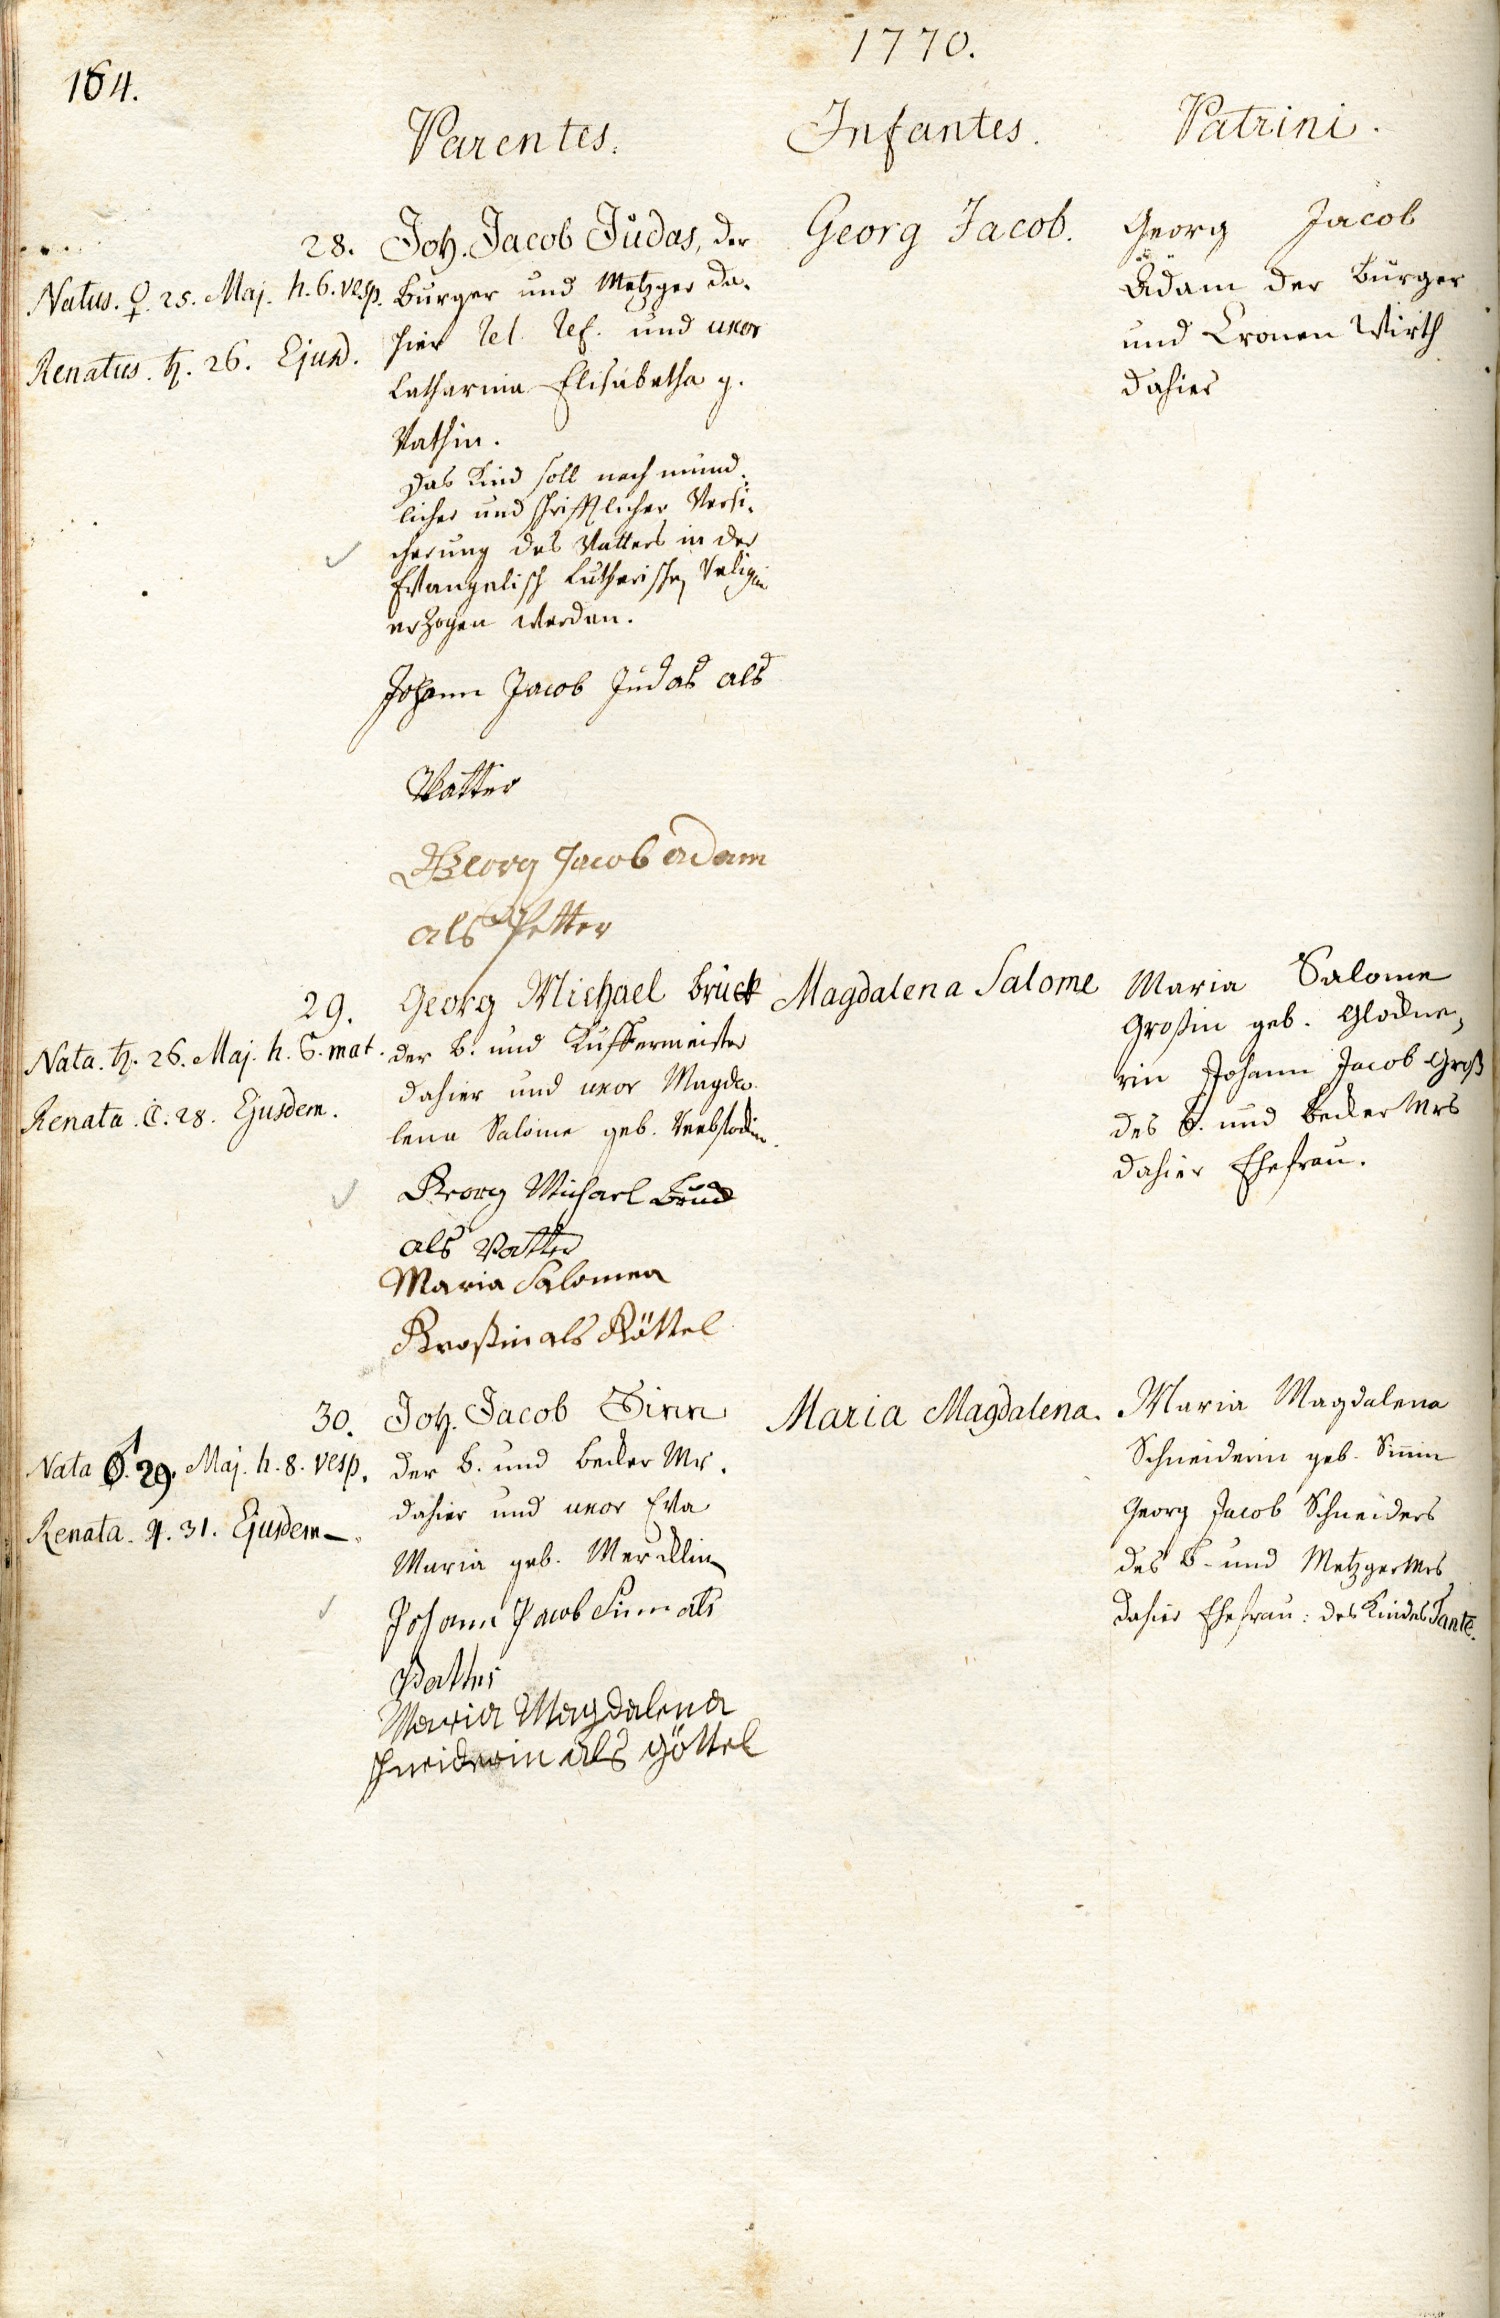 1770.
164.
Parentes. Infantes. Patrini.
28. Joh. Jacob Judas, der
Burger und Metzger da-
hier rel. ref. und uxor
Catharina Elisabetha g.
Rathin.
Das Kind soll nach münd-
licher und schrifftlicher Versi-
cherung des Vatters in der
Evangelisch Lutherischen Religion
erzogen werden.
Johann Jacob Judas als
Vatter
Georg Jacob Adam
als Petter
Natus. ♀. 25. Maj. h. 6. vesp.
Renatus. ♄. 26. Ejusd.
Georg Jacob.
Georg Jacob
Adam der Burger
und Cronen Wirth
dahier
29. Georg Michael Brück
der B. und Kuffermeister
dahier und uxor Magda-
lena Salome geb.
Georg Michael Brück
als Vatter
Maria Salomea
Großin als Göttel
Nata. ♄. 26. Maj. h. 6. mat.
Renata. ☾. 28. Ejusdem.
Magdalena Salome
Maria Salome
Großin geb. Glockne-
rin Johann Jacob Groß
des B. und Becker Mrs
dahier Ehefrau.
30. Joh. Jacob Sinn
der B. und Becker Mr.
dahier und uxor Eva
Maria geb. Mercklin
Johann Jacob Sinn als
Vatter
Maria Magdalena
schneiderin als göttel
Nata ♂. 29. Maj. h. 8. vesp.
Renata. ♃. 31. Ejusdem
Maria Magdalena.
Maria Magdalena
Schneiderin geb. Sinnin
Georg Jacob Schneiders
des B. und Metzger Mrs
dahier Ehefrau: des Kindes Tante.